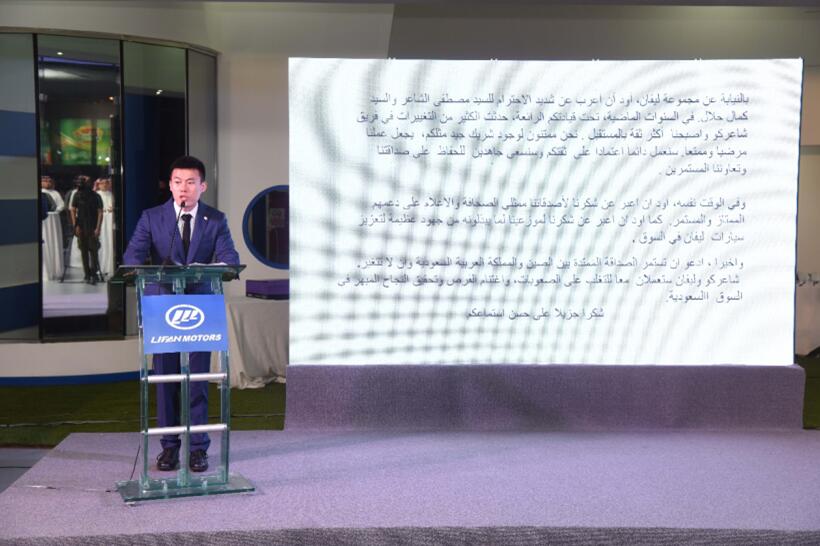 بالنيابة عن مجموعة ليفان، أود أن أعرب عن شديد الاحترام للسيد مصطفى الشاعر والسيد
كمال حلال. في السنوات الماضية، تحت قيادتكم الرائعة، حدثت الكثير من التغييرات في فريق
شاعركو واصبحنا أكثر ثقة بالمستقبل . نحن ممتنون لوجود شريك جيد مثلكم، يجعل عملنا
مرضيا وممتعا. سنعمل دائما اعتمادا على ثقتكم وسنسعى جاهدين للحفاظ على صداقتنا
وتعاوننا المستمرين .
وفي الوقت نفسه، اود ان اعبر عن شكرنا لأصدقائنا ممثلي الصحافة والاعلام على دعمهم
الممتاز والمستمر. كما اود ان اعبر عن شكرنا لموزعينا لما يبذلونه من جهود عظيمة لتعزيز
سيارات ليفان في السوق .
واخيرا ، ادعو ان تستمر الصداقة الممتدة بين الصين والمملكة العربية السعودية وان لا تتغير.
شاعركو وليفان ستعملان معا للتغلب على الصعوبات، واغتنام الفرص وتحقيق النجاح المبهر في
السوق السعودية.
شكرا جزيلا على حسن استماعكم
LIFAN MOTORS